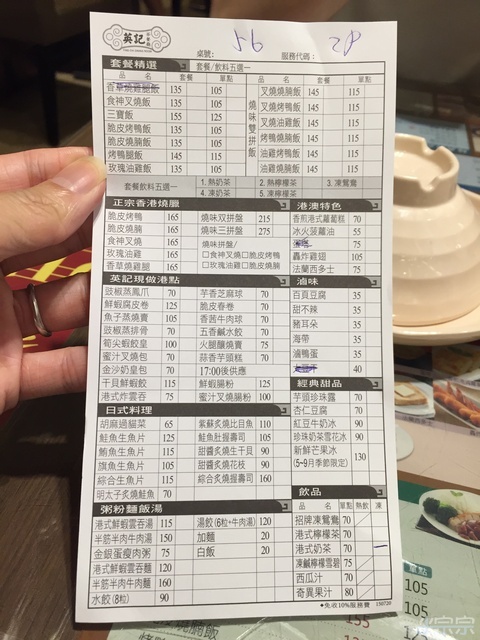 英記
桌號: 56 服務代碼: 28
套餐精選 套餐/飲料五選一
品 名 套餐 單點 品 名 套餐 單點
香草燒雞腿飯 135 105
食神叉燒飯 135 105
三寶飯 155 125
脆皮烤鴨飯 135 105
脆皮燒腩飯 135 105
烤鴨腿飯 145 115
玫瑰油雞飯 135 105
燒味雙拼飯
叉燒燒腩飯 145 115
叉燒烤鴨飯 145 115
叉燒油雞飯 145 115
烤鴨燒腩飯 145 115
油雞烤鴨飯 145 115
油雞燒腩飯 145 115
套餐飲料五選一 1. 熱奶茶 2. 熱檸檬茶 3. 凍鴛鴦
4. 凍奶茶 5. 凍檸檬茶
正宗香港燒臘
脆皮烤鴨 165
脆皮燒腩 165
食神叉燒 165
玫瑰油雞 165
香草燒雞腿 165
燒味双拼盤 215
燒味三拼盤 275
燒味拼盤/
□食神叉燒□脆皮烤鴨
□玫瑰油雞□脆皮燒腩
港澳特色
香煎港式蘿蔔糕 70
冰火菠蘿油 55
75
轟炸雞翅 105
法蘭西多士 75
英記現做港點
豉椒蒸鳳爪 70
鮮蝦腐皮卷 125
魚子蒸燒賣 105
豉椒蒸排骨 70
筍尖蝦餃皇 100
蜜汁叉燒包 70
金沙奶皇包 70
干貝鮮蝦餃 115
港式炸雲吞 115
芋香芝麻球 70
脆皮春卷 70
香茜牛肉球 70
五香鹹水餃 70
火腿釀燒賣 75
蒜香芋頭糕 70
17:00後供應
鮮蝦腸粉 125
蜜汁叉燒腸粉 100
滷味
百頁豆腐 35
甜不辣 35
豬耳朵 35
海帶 35
滷鴨蛋 35
40
經典甜品
芋頭珍珠露 70
杏仁豆腐 70
紅豆牛奶冰 90
珍珠奶茶雪花冰 90
新鮮芒果冰 130
(5~9月季節限定)
日式料理
胡麻過貓菜 65
鮭魚生魚片 125
鮪魚生魚片 115
旗魚生魚片 105
綜合生魚片 115
明太子炙燒鮭魚 70
紫蘇炙燒比目魚 110
鮭魚肚握壽司 105
甜醬炙燒生干貝 90
甜醬炙燒花枝 90
綜合炙燒握壽司 160
粥粉麵飯湯
港式鮮蝦雲吞湯 115
半筋半肉牛肉湯 150
金銀蛋瘦肉粥 75
港式鮮蝦雲吞麵 120
半筋半肉牛肉麵 160
水餃 (8粒) 90
湯餃 (6粒+牛肉湯) 120
加麵 20
白飯 20
飲品
品名 單點 熱飲 凍
招牌凍鴛鴦 70
港式檸檬茶 70
港式奶茶 70
凍鹹檸檬雪碧 70
西瓜汁 70
奇異果汁 80
●免收10%服務費 150720
單點
105
105
155